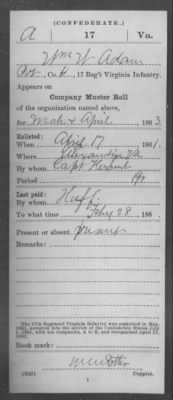 (CONFEDERATE.)
A 17 Va.
Wm W Adam
Pvt, Co. H, 17 Reg't Virginia Infantry.
Appears on
Company Muster Roll
of the organization named above,
for Mch & April, 1863.
Enlisted:
When April 17, 1861.
Where Alexandria Va
By whom Capt Herbert
Period 1 yr
Last paid:
By whom
To what time Feby 28, 186
Present or absent Present
Remarks:
The 17th Regiment Virginia Infantry was organized in May,
1861, accepted into the service of the Confederate States July
1, 1861, with ten companies, A to K, and reorganized April 27,
1862.
Book mark:
(642) Copyist.